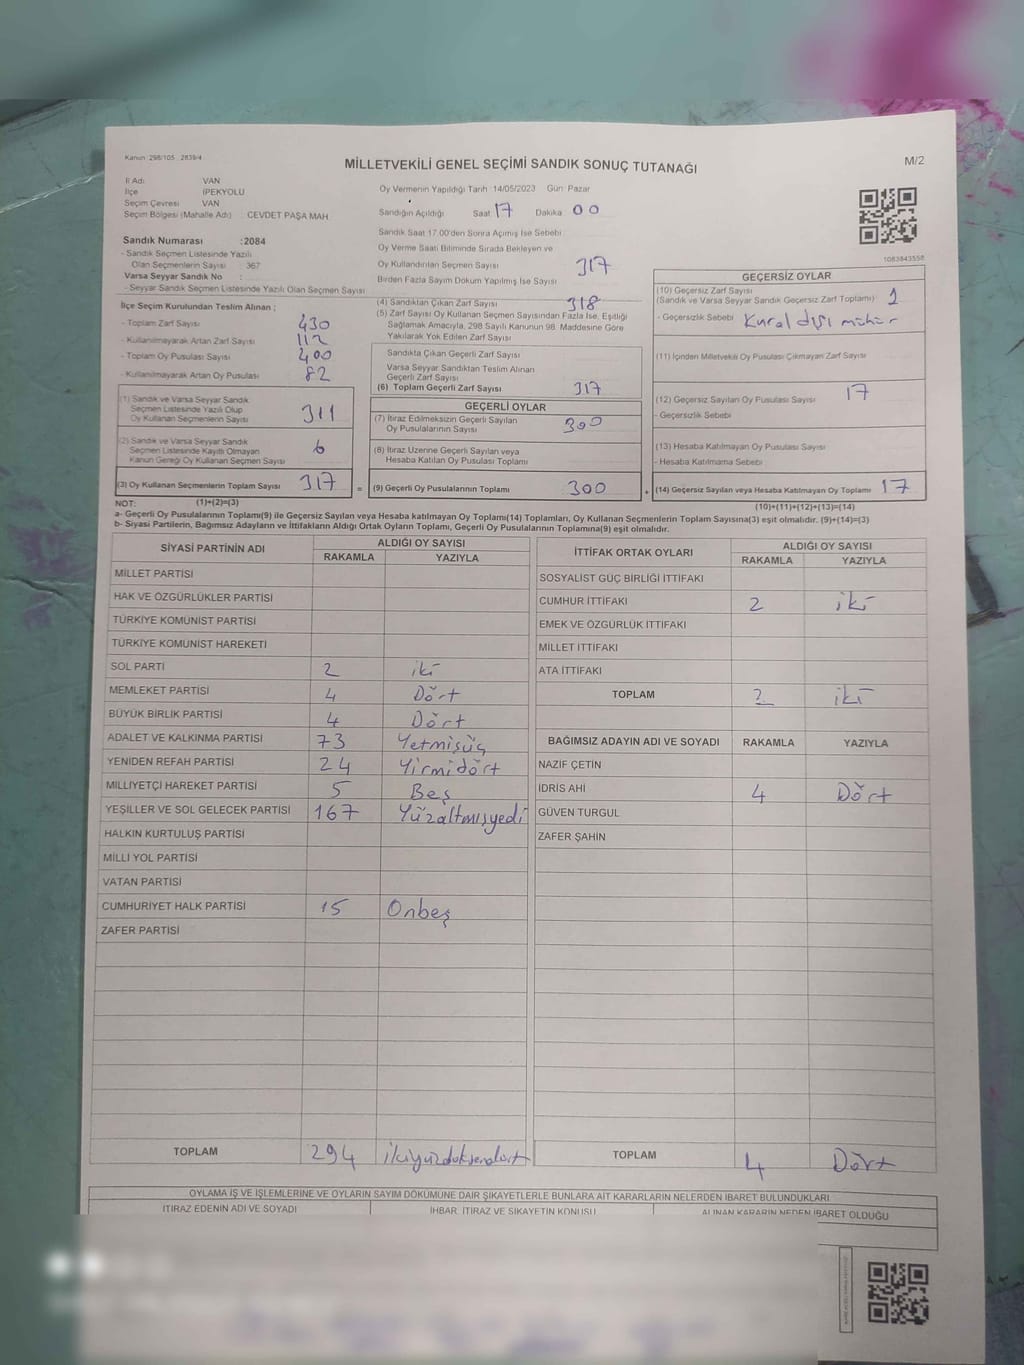 Kanun 298/105 2839/4
MİLLETVEKİLİ GENEL SEÇİMİ SANDIK SONUÇ TUTANAĞI
M/2
İl Adı VAN
İlçe İPEKYOLU
Seçim Çevresi VAN
Seçim Bölgesi (Mahalle Adı) : CEVDET PAŞA MAH.
Oy Vermenin Yapıldığı Tarih 14/05/2023 Gün: Pazar
Sandığın Açıldığı Saat 17 Dakika 00
Sandık Saat 17.00'den Sonra Açılmış İse Sebebi
Oy Verme Saati Bitiminde Sırada Bekleyen ve
Oy Kullandırılan Seçmen Sayısı 317
Birden Fazla Sayım Döküm Yapılmış İse Sayısı
1083843558
Sandık Numarası :2084
- Sandık Seçmen Listesinde Yazılı
Olan Seçmenlerin Sayısı : 367
Varsa Seyyar Sandık No :
- Seyyar Sandık Seçmen Listesinde Yazılı Olan Seçmen Sayısı
İlçe Seçim Kurulundan Teslim Alınan ;
- Toplam Zarf Sayısı 430
- Kullanılmayarak Artan Zarf Sayısı 112
- Toplam Oy Pusulası Sayısı 400
- Kullanılmayarak Artan Oy Pusulası 82
(1) Sandık ve Varsa Seyyar Sandık
Seçmen Listesinde Yazılı Olup
Oy Kullanan Seçmenlerin Sayısı 311
(2) Sandık ve Varsa Seyyar Sandık
Seçmen Listesinde Kayıtlı Olmayan
Kanun Gereği Oy Kullanan Seçmen Sayısı 6
(3) Oy Kullanan Seçmenlerin Toplam Sayısı 317
(1)+(2)=(3)
(4) Sandıktan Çıkan Zarf Sayısı 318
(5) Zarf Sayısı Oy Kullanan Seçmen Sayısından Fazla İse, Eşitliği
Sağlamak Amacıyla, 298 Sayılı Kanunun 98. Maddesine Göre
Yakılarak Yok Edilen Zarf Sayısı
Sandıkta Çıkan Geçerli Zarf Sayısı
Varsa Seyyar Sandıktan Teslim Alınan
Geçerli Zarf Sayısı
(6) Toplam Geçerli Zarf Sayısı 317
GEÇERLİ OYLAR
(7) İtiraz Edilmeksizin Geçerli Sayılan
Oy Pusulalarının Sayısı 300
(8) İtiraz Üzerine Geçerli Sayılan veya
Hesaba Katılan Oy Pusulası Toplamı
= (9) Geçerli Oy Pusulalarının Toplamı 300
GEÇERSİZ OYLAR
(10) Geçersiz Zarf Sayısı
(Sandık ve Varsa Seyyar Sandık Geçersiz Zarf Toplamı) 1
- Geçersizlik Sebebi Kural dışı mühür
(11) İçinden Milletvekili Oy Pusulası Çıkmayan Zarf Sayısı
(12) Geçersiz Sayılan Oy Pusulası Sayısı 17
- Geçersizlik Sebebi
(13) Hesaba Katılmayan Oy Pusulası Sayısı
- Hesaba Katılmama Sebebi
+ (14) Geçersiz Sayılan veya Hesaba Katılmayan Oy Toplamı 17
(10)+(11)+(12)+(13)=(14)
NOT:
a- Geçerli Oy Pusulalarının Toplamı(9) ile Geçersiz Sayılan veya Hesaba katılmayan Oy Toplamı(14) Toplamları, Oy Kullanan Seçmenlerin Toplam Sayısına(3) eşit olmalıdır. (9)+(14)=(3)
b- Siyasi Partilerin, Bağımsız Adayların ve İttifakların Aldığı Ortak Oyların Toplamı, Geçerli Oy Pusulalarının Toplamına(9) eşit olmalıdır.
SİYASİ PARTİNİN ADI ALDIĞI OY SAYISI
RAKAMLA YAZIYLA
MİLLET PARTİSİ
HAK VE ÖZGÜRLÜKLER PARTİSİ
TÜRKİYE KOMÜNİST PARTİSİ
TÜRKİYE KOMÜNİST HAREKETİ
SOL PARTİ 2 iki
MEMLEKET PARTİSİ 4 Dört
BÜYÜK BİRLİK PARTİSİ 4 Dört
ADALET VE KALKINMA PARTİSİ 73 Yetmişüç
YENİDEN REFAH PARTİSİ 24 Yirmidört
MİLLİYETÇİ HAREKET PARTİSİ 5 Beş
YEŞİLLER VE SOL GELECEK PARTİSİ 167 Yüzaltmışyedi
HALKIN KURTULUŞ PARTİSİ
MİLLİ YOL PARTİSİ
VATAN PARTİSİ
CUMHURİYET HALK PARTİSİ 15 Onbeş
ZAFER PARTİSİ
TOPLAM 294 ikiyüzdoksendört
İTTİFAK ORTAK OYLARI ALDIĞI OY SAYISI
RAKAMLA YAZIYLA
SOSYALİST GÜÇ BİRLİĞİ İTTİFAKI
CUMHUR İTTİFAKI 2 iki
EMEK VE ÖZGÜRLÜK İTTİFAKI
MİLLET İTTİFAKI
ATA İTTİFAKI
TOPLAM 2 iki
BAĞIMSIZ ADAYIN ADI VE SOYADI RAKAMLA YAZIYLA
NAZİF ÇETİN
İDRİS AHİ 4 Dört
GÜVEN TURGUL
ZAFER ŞAHİN
TOPLAM 4 Dört
OYLAMA İŞ VE İŞLEMLERİNE VE OYLARIN SAYIM DÖKÜMÜNE DAİR ŞİKAYETLERLE BUNLARA AİT KARARLARIN NELERDEN İBARET BULUNDUKLARI
İTİRAZ EDENİN ADI VE SOYADI İHBAR, İTİRAZ VE ŞİKAYETİN KONUSU ALINAN KARARIN NEDEN İBARET OLDUĞU